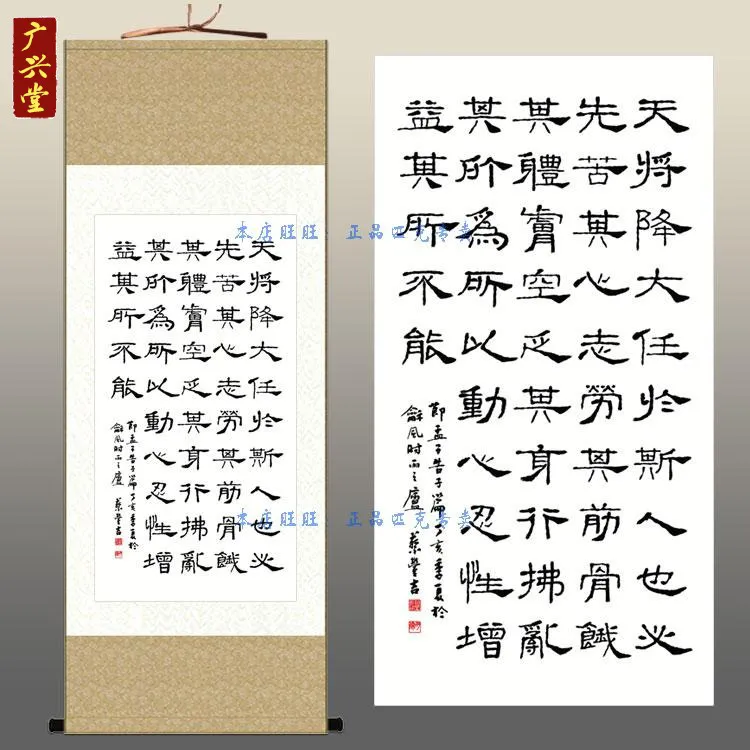 广兴堂
天将降大任於斯人也必
先苦其心志勞其筋骨餓
其體膚空乏其身行拂亂
其所為所以動心忍性增
益其所不能
節孟子告子篇丁亥季夏於
龢風时雨之廬 蔡豐吉
天将降大任於斯人也必
先苦其心志勞其筋骨餓
其體膚空乏其身行拂亂
其所為所以動心忍性增
益其所不能
節孟子告子篇丁亥季夏於
龢風时雨之廬 蔡豐吉
本店旺旺：正品匹克专卖
本店旺旺：正品匹克专卖